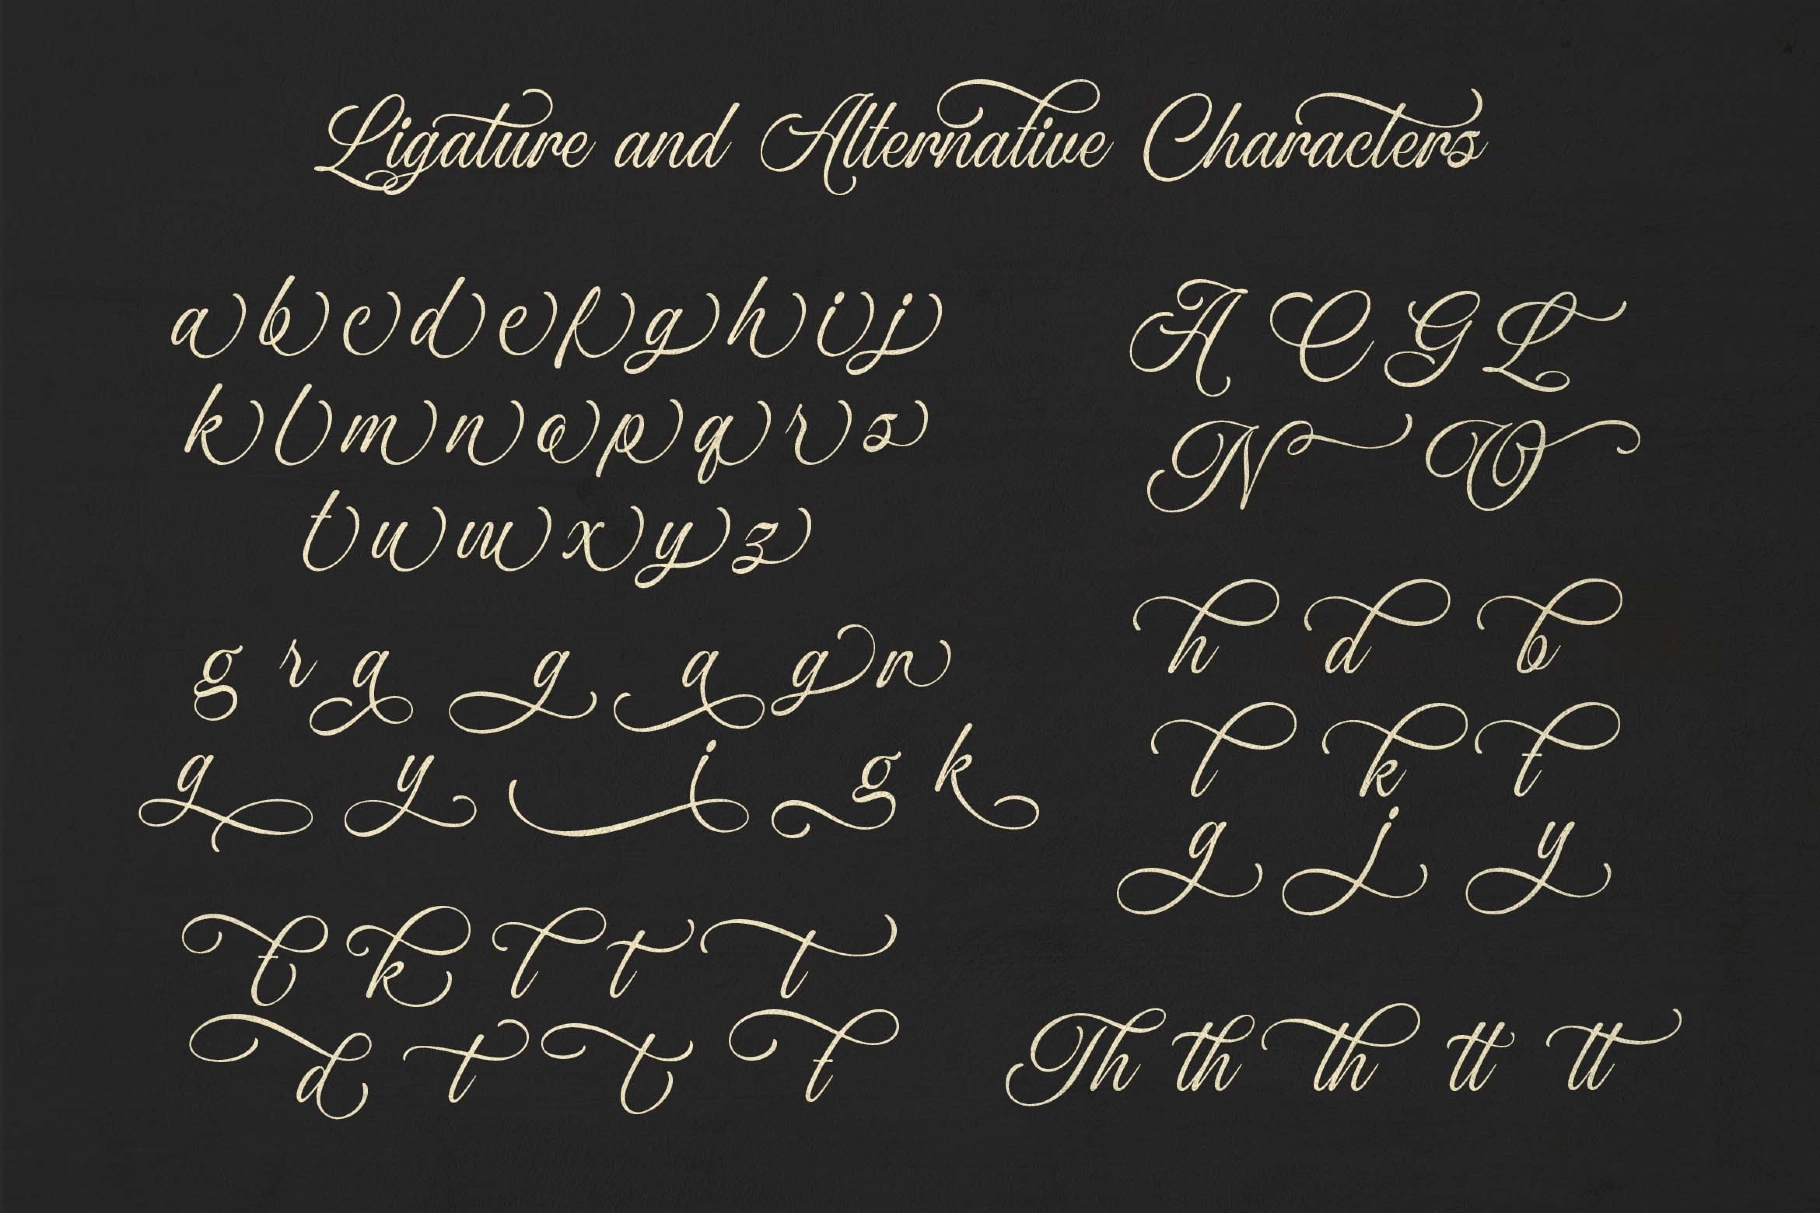 Ligature and Alternative Characters
a b c d e f g h i j
k l m n o p q r s
t u w x y z
g r a g a g n
g y i g k
t k l t t
d t t t
A C G L
N W
h d b
l k t
g j y
Th th th tt tt